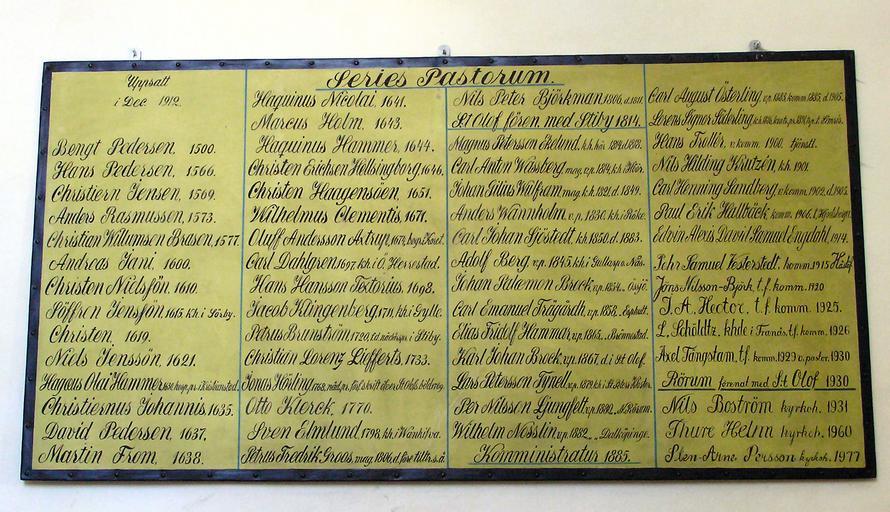 Series Pastorum.
Uppsatt
i Dec 1912.
Bengt Pedersen 1500.
Hans Pedersen, 1566.
Christiern Jensen, 1569.
Anders Rasmussen, 1573.
Christian Willumsen Brasen, 1577.
Andreas Jani, 1600.
Christen Nielsøn, 1610.
Søffren Jensføn, 1615 k.h. i Görby.
Christen 1619.
Niels Jenssön, 1621.
Haqvus Olai Hammer,
Christiernus Johannis, 1635.
David Pedersen, 1637.
Martin From, 1638.
Haquinus Nicolai, 1641.
Marcus Holm, 1643.
Haquinus Hammer, 1644.
Christen Erichsen Hellsingborg, 1646.
Christen Haagensöen, 1651.
Wilhelmus Clementis, 1671.
Oluff Andersson Astrup,
Carl Dahlgren 1697 k.h. i Ö. Herrestad.
Hans Hansson Textorius, 1698.
Jacob Klingenberg, 1711, k.h. i Gylle.
Petrus Brunström, 1720,
Christian Lorenz Liefferts, 1733.
Jonas Hörling,
Otto Klerck, 1770.
Sven Elmlund, 1798, k.h. i Wankifva.
Petrus Fredrik Groos, mag. 1806, d. före tilltr. s.å.
Nils Peter Björkman 1806, d. 1811.
St Olof fören. med Stiby 1814.
Magnus Petersson Ekelund,
Carl Anton Wåsberg mag. v.p. 1824, k.h. i Hör.
Johan Silius Wulfram mag. k.h. 1821, d. 1849.
Anders Wannholm, v.p. 1836, k.h. i Bråke.
Carl Johan Sjöstedt, k.h. 1850, d. 1883.
Adolf Berg, v.p. 1845, k.h. i
Johan Philemon Brock, v.p. 1854.
Carl Emanuel Frägårdh, v.p. 1858.
Elias Fridolf Hammar, v.p. 1865.
Karl Johan Brock, v.p. 1867, d. i St Olof.
Lars Petersson Tynell, v.p. 1879,
Per Nilsson Ljungfelt, v.p. 1880,
Wilhelm Nosslin, v.p. 1882, „ Dalköpinge.
Komministratur 1885.
Carl August Österling, v.p. 1883, komm. 1885, d. 1905.
Lorens Signor Säderling
Hans Troller, v. komm. 1900, tjänstl.
Nils Hilding Krutzén, k.h. 1901.
Carl Henning Sandberg, v. komm. 1902, d. 1905.
Paul Erik Hallbäck, komm. 1906,
Edvin Alexis David Samuel Engdahl, 1914.
Pehr Samuel Vesterstedt, komm 1915
Jöns Nilsson-Björk, t.f. komm. 1920
J. A. Hector, t.f. komm. 1925.
L. Schöldtz, khde i Tranås, t.f. komm. 1926
Axel Tångstam, t.f. komm. 1929 v. pastor, 1930
Rörum förenad med S:t Olof 1930
Nils Boström kyrkoh. 1931
Thure Helm kyrkoh. 1960
Sten-Arne Persson kyrkoh. 1977